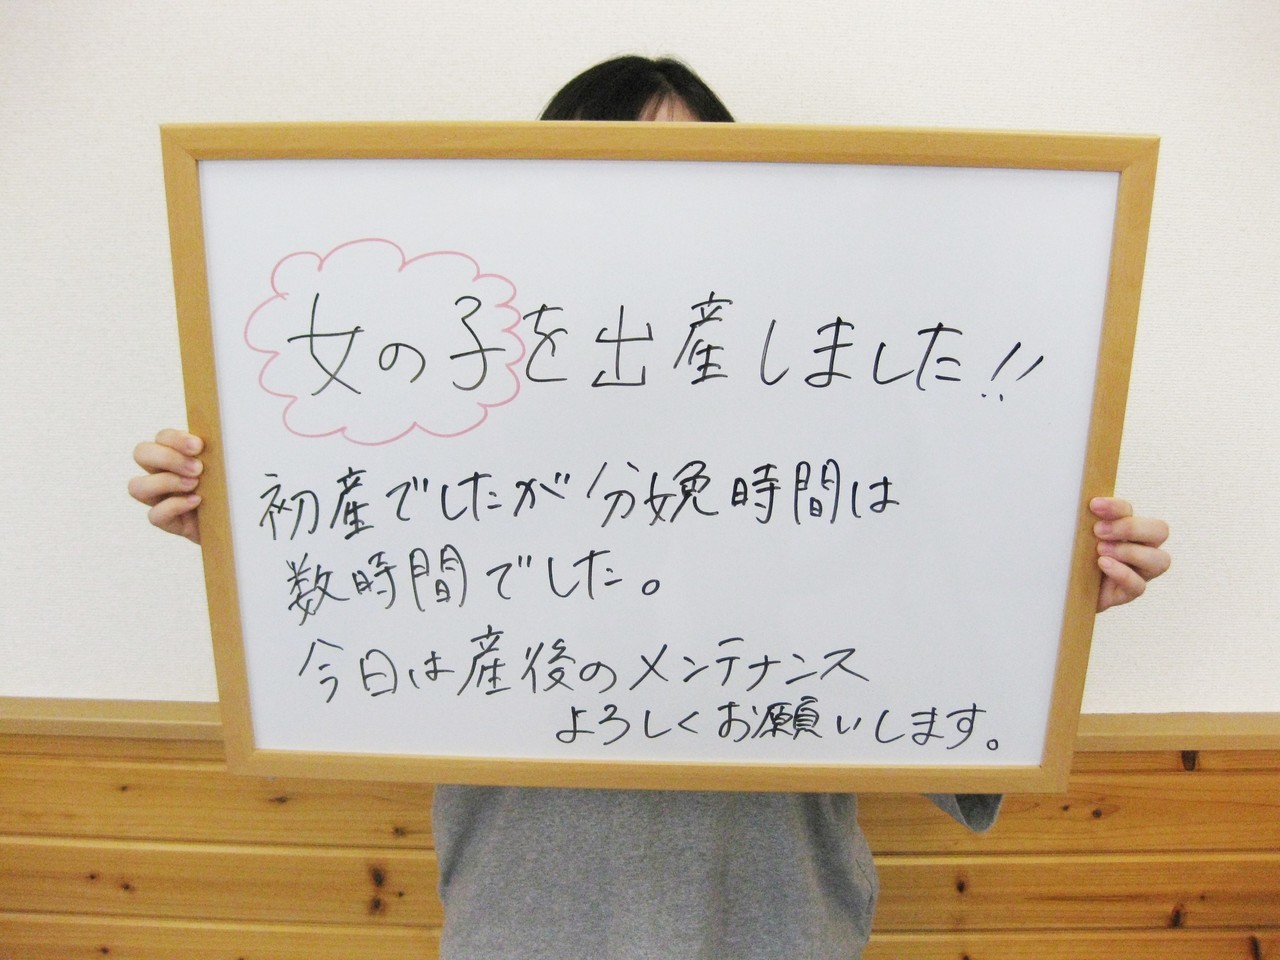 女の子を出産しました!!
初産でしたが分娩時間は
数時間でした。
今日は産後のメンテナンス
よろしくお願いします。